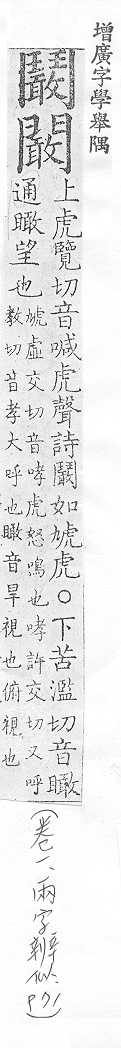 增廣字學舉隅
闞
㘚
上虎覽切音喊虎聲詩闞如虓虎○下苦濫切音瞰
通瞰望也
虓虛交切音哮虎怒鳴也哮許交切又呼
教切音孝大呼也瞰音旱視也俯視也
(卷一、兩字辨似、P71)